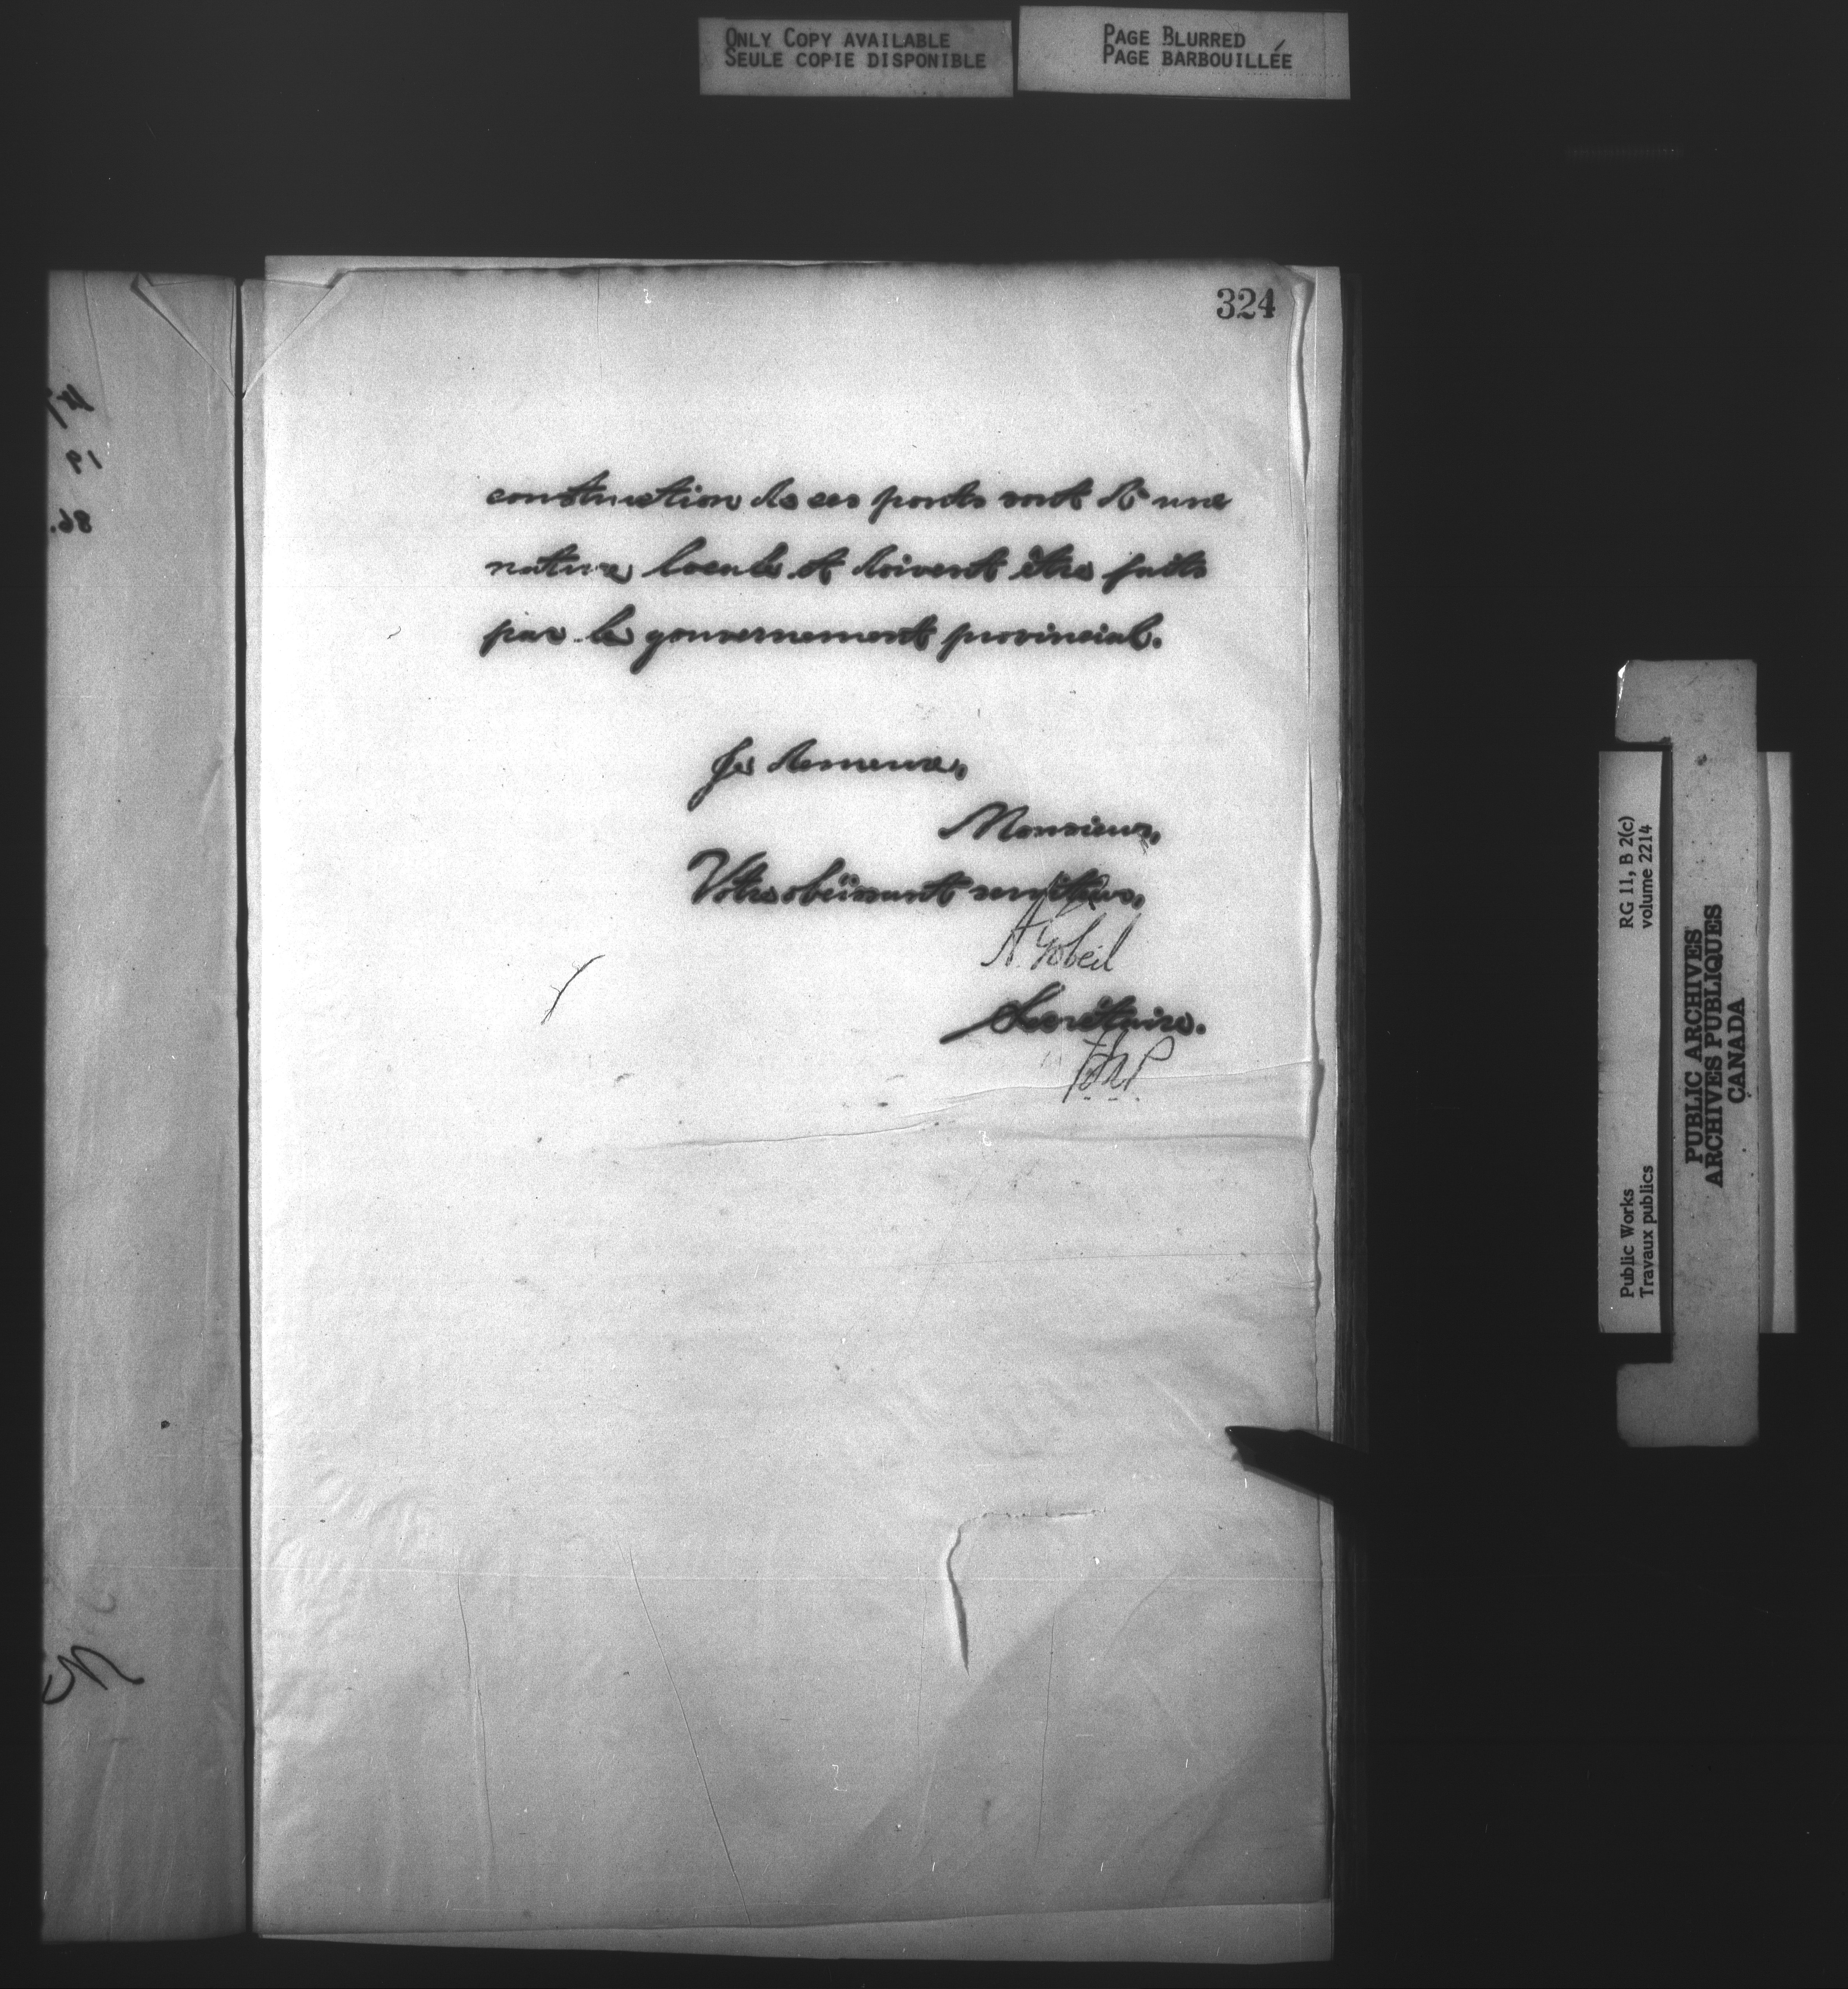 ONLY COPY AVAILABLE
SEULE COPIE DISPONIBLE
PAGE BLURRED
PAGE BARBOUILLÉE
324
construction de ces ponts sont d'une
nature locale et doivent être faits
par le gouvernement provincial.
Je demeure,
Monsieur,
Votre obéissant serviteur,
A Gobeil
Secrétaire.
RG 11, B 2(c)
volume 2214
Public Works
Travaux publics
PUBLIC ARCHIVES
ARCHIVES PUBLIQUES
CANADA